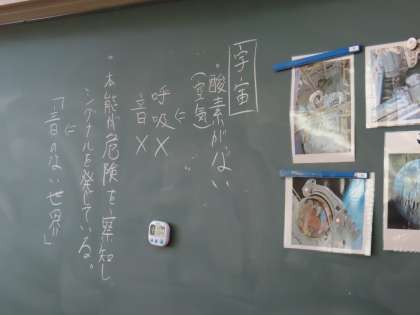 宇宙
・酸素がない
(空気)
に
呼吸×
音×
・本能が危険を察知し
シグナルを発している。
に
「音のない世界」